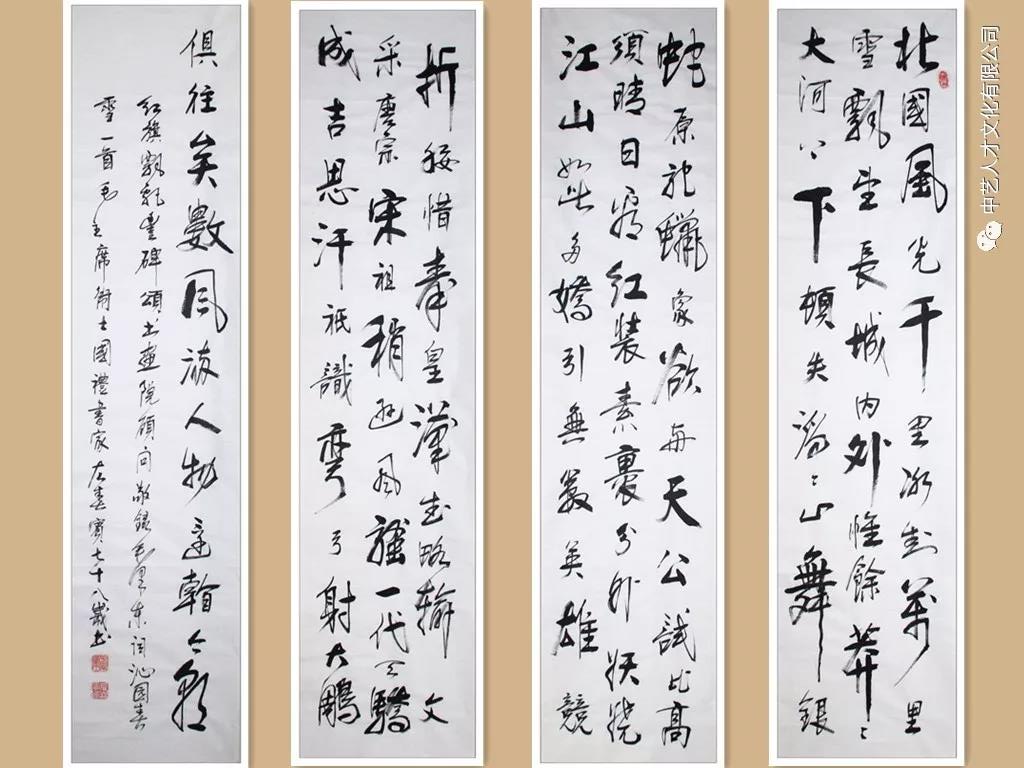 北國風光千里冰封萬里
雪飄望長城內外惟餘莽〻
大河上下頓失滔〻山舞銀
蛇原馳蠟象欲與天公試比高
須晴日看紅裝素裹分外妖嬈
江山如此多嬌引無數英雄競
折腰惜秦皇漢武略輸文
采唐宗宋祖稍遜風騷一代天驕
成吉思汗祇識彎弓射大鵰
俱往矣數風流人物還看今朝
紅旗飄飄豐碑頌畫院顧問敬錄毛澤東詞沁園春
雪一首毛主席衛士國禮書家左春七十八歲書
中艺人才文化有限公司